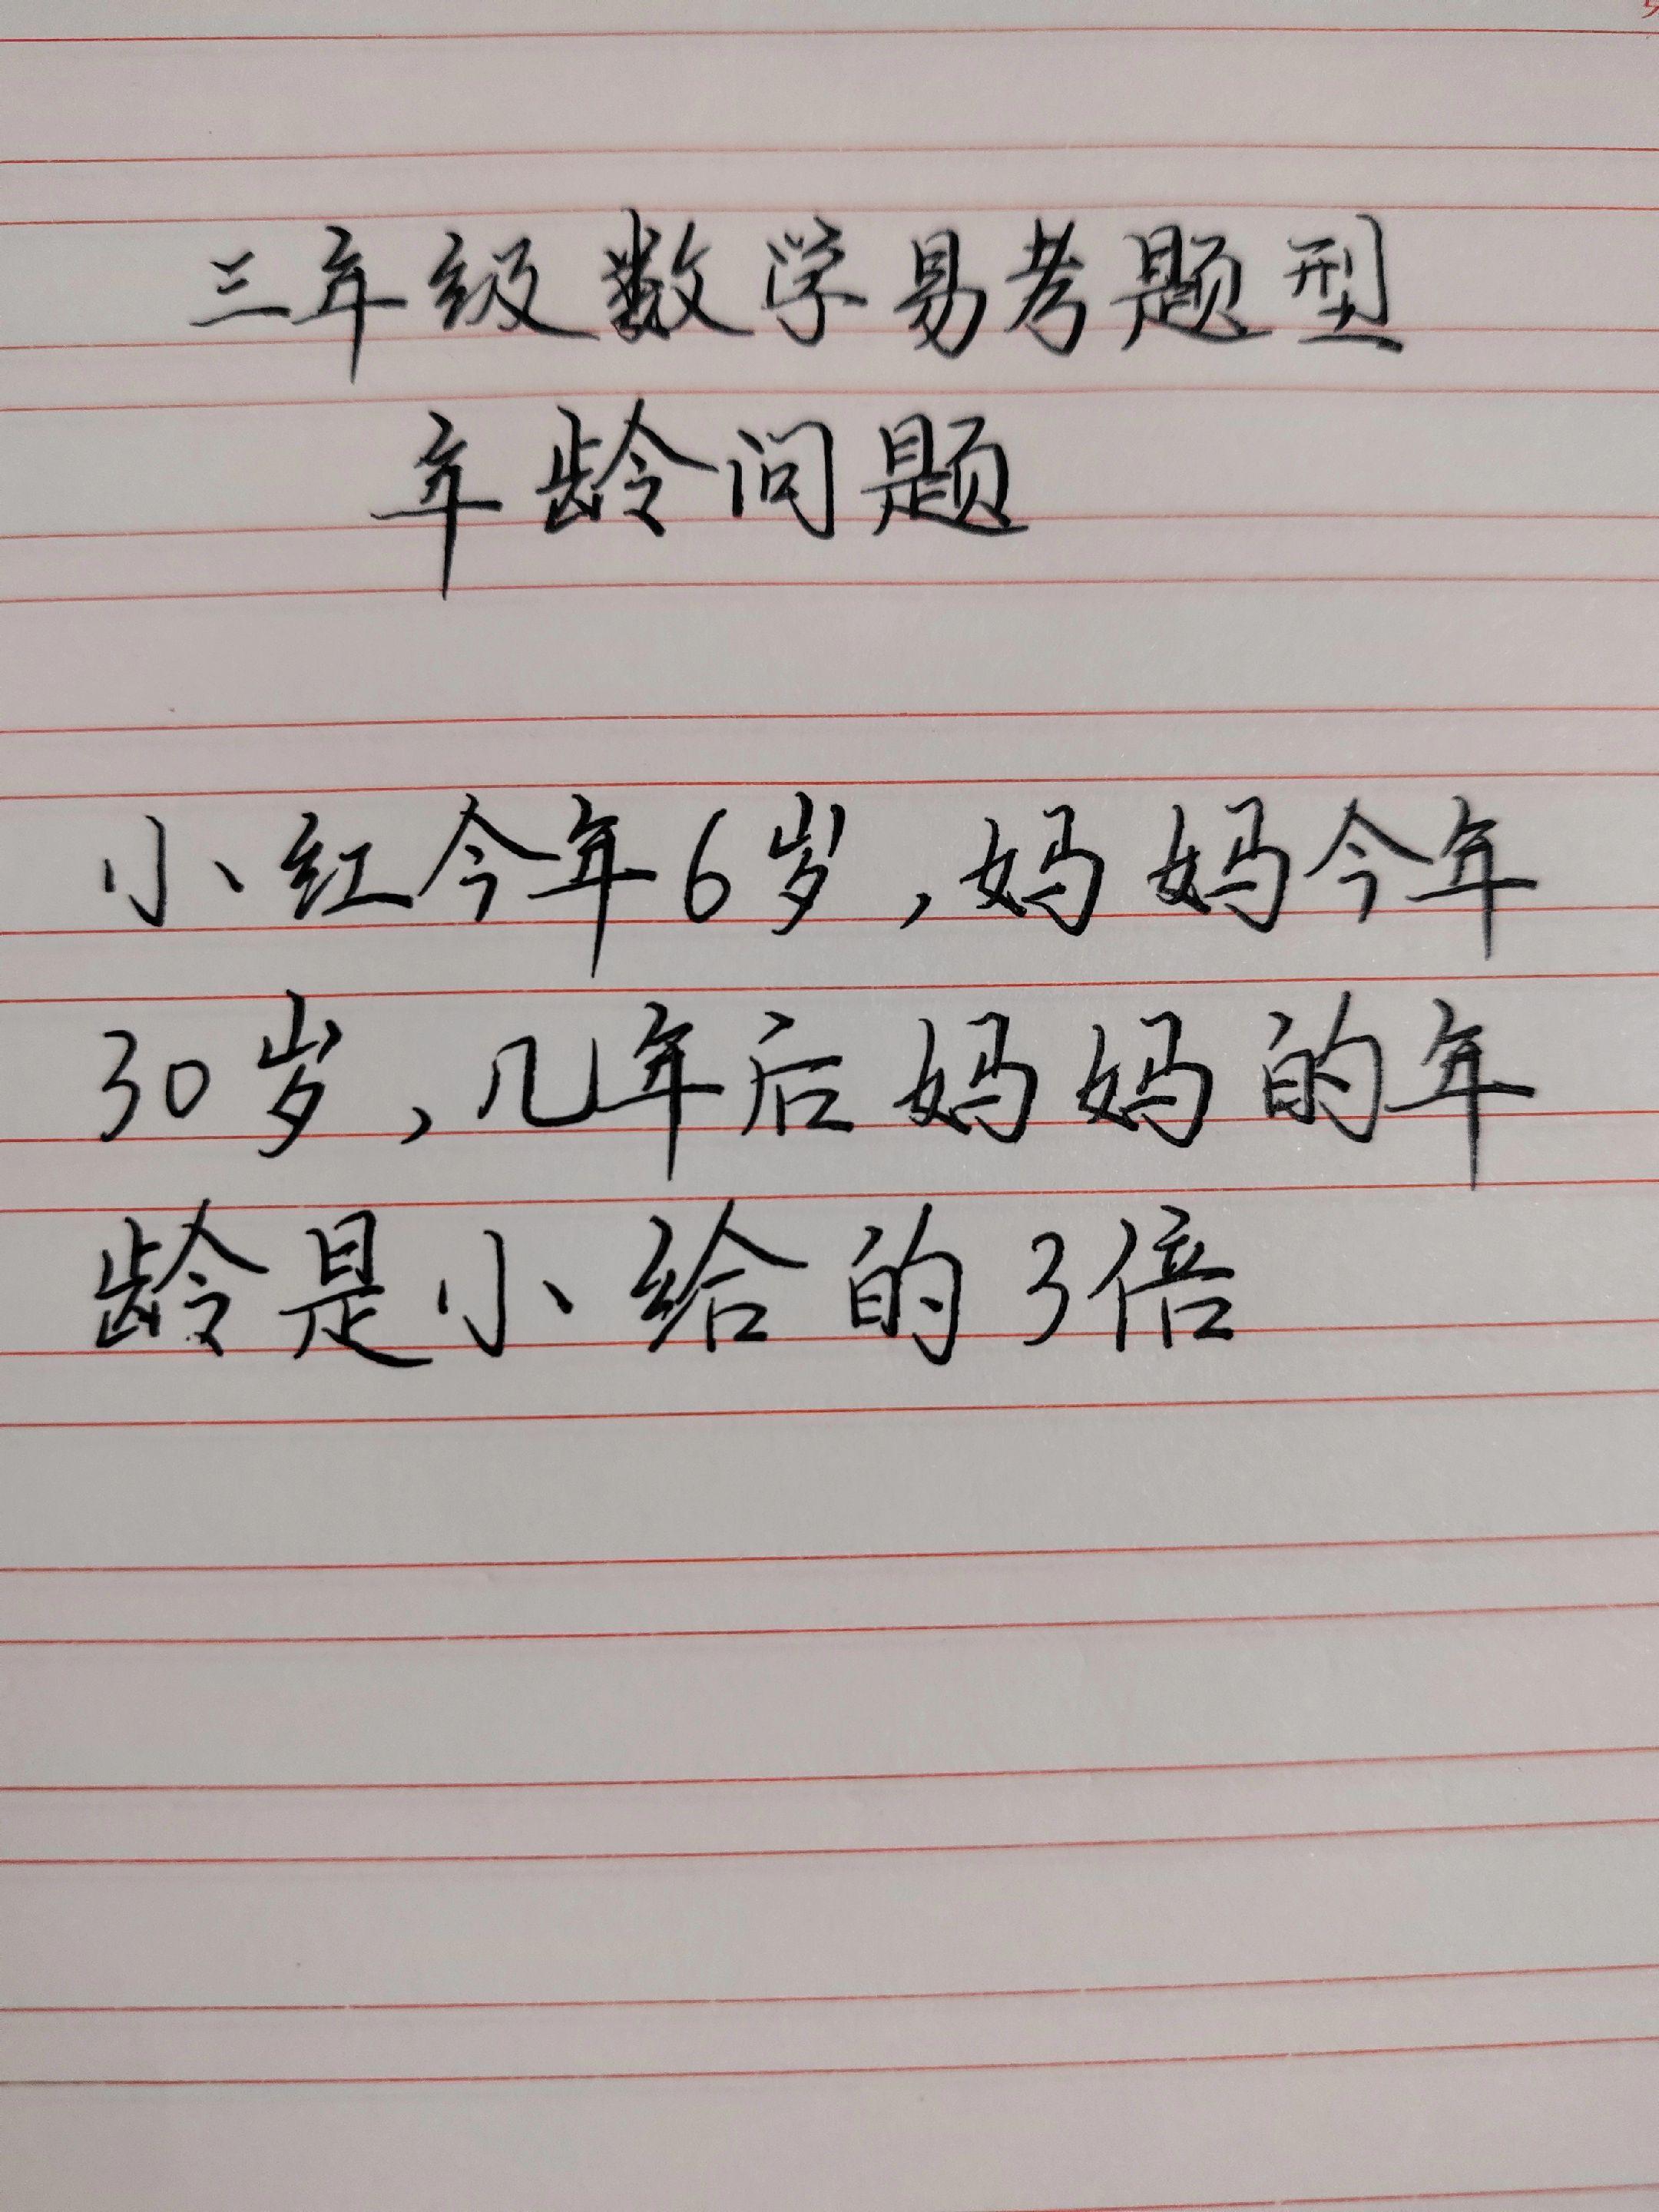 三年级数学易考题型
年龄问题
小红今年6岁,妈妈今年
30岁,几年后妈妈的年
龄是小给的3倍